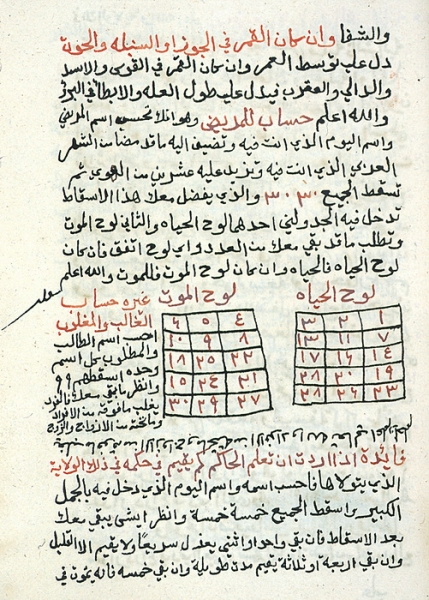 والشفا وان كان القمر في الجوزا والسنبله والحوت
دل على توسط العمر وان كان القمر في القوس والاسد
والدالي والعقرب فيدل على طول العله والابطا في البرؤ
والله اعلم حساب للمريض وهو انك تحسب اسم المريض
واسم اليوم الذي انت فيه وتضيف اليه ما قد مضا من الشهر
العربي الذي انت فيه وتزيد عليه عشرين من الهوى ثم
تسقط الجميع ٣٠ ٣٠ والذي يفضل معك هذا الاسقاط
تدخل فيه الجدولين احدهما لوح الحياه والثاني لوح الموت
وتطلب ما قد بقي معك من العدد واي لوح اتفق فان كان
لوح الحياه فالحياه وان كان لوح الموت فللموت والله اعلم
لوح الحياه
١ ٢ ٣
٧ ١١ ١٣
١٤ ١٦ ١٧
١٩ ٢٠ ٢٨
٢٣ ٢٦ ٢٨
لوح الموت
٤ ٥ ٦
٨ ٩ ١٠
٢٢ ٢٥ ١٨
٢١ ٢٤ ١٥
٢٧ ٢٩ ٣٠
غيره حساب
الغالب والمغلوب
احسب اسم الطالب
والمطلوب كل اسم
وحده اسقطهم ٩ ٩
وانظر ما بقي معك فالفرد
يغلب ما فوقه من الافراد
وما تحته من الازواج والزوج
فايدة اذا اردت ان تعلم الحاكم كم يقيم في حكمه في ذلك الولاية
الذي يتولاها فاحسب اسمه واسم اليوم الذي دخل فيه بالجمل
الكبير واسقط الجميع خمسة خمسة وانظر ايشى يبقى معك
بعد الاسقاط فان بقي واحد او اثنين يعزل سريعا ولا يقيم الا القليل
وان بقي اربعة او ثلاثة يقيم مدة طويله وان بقي خمسه فانه يموت في